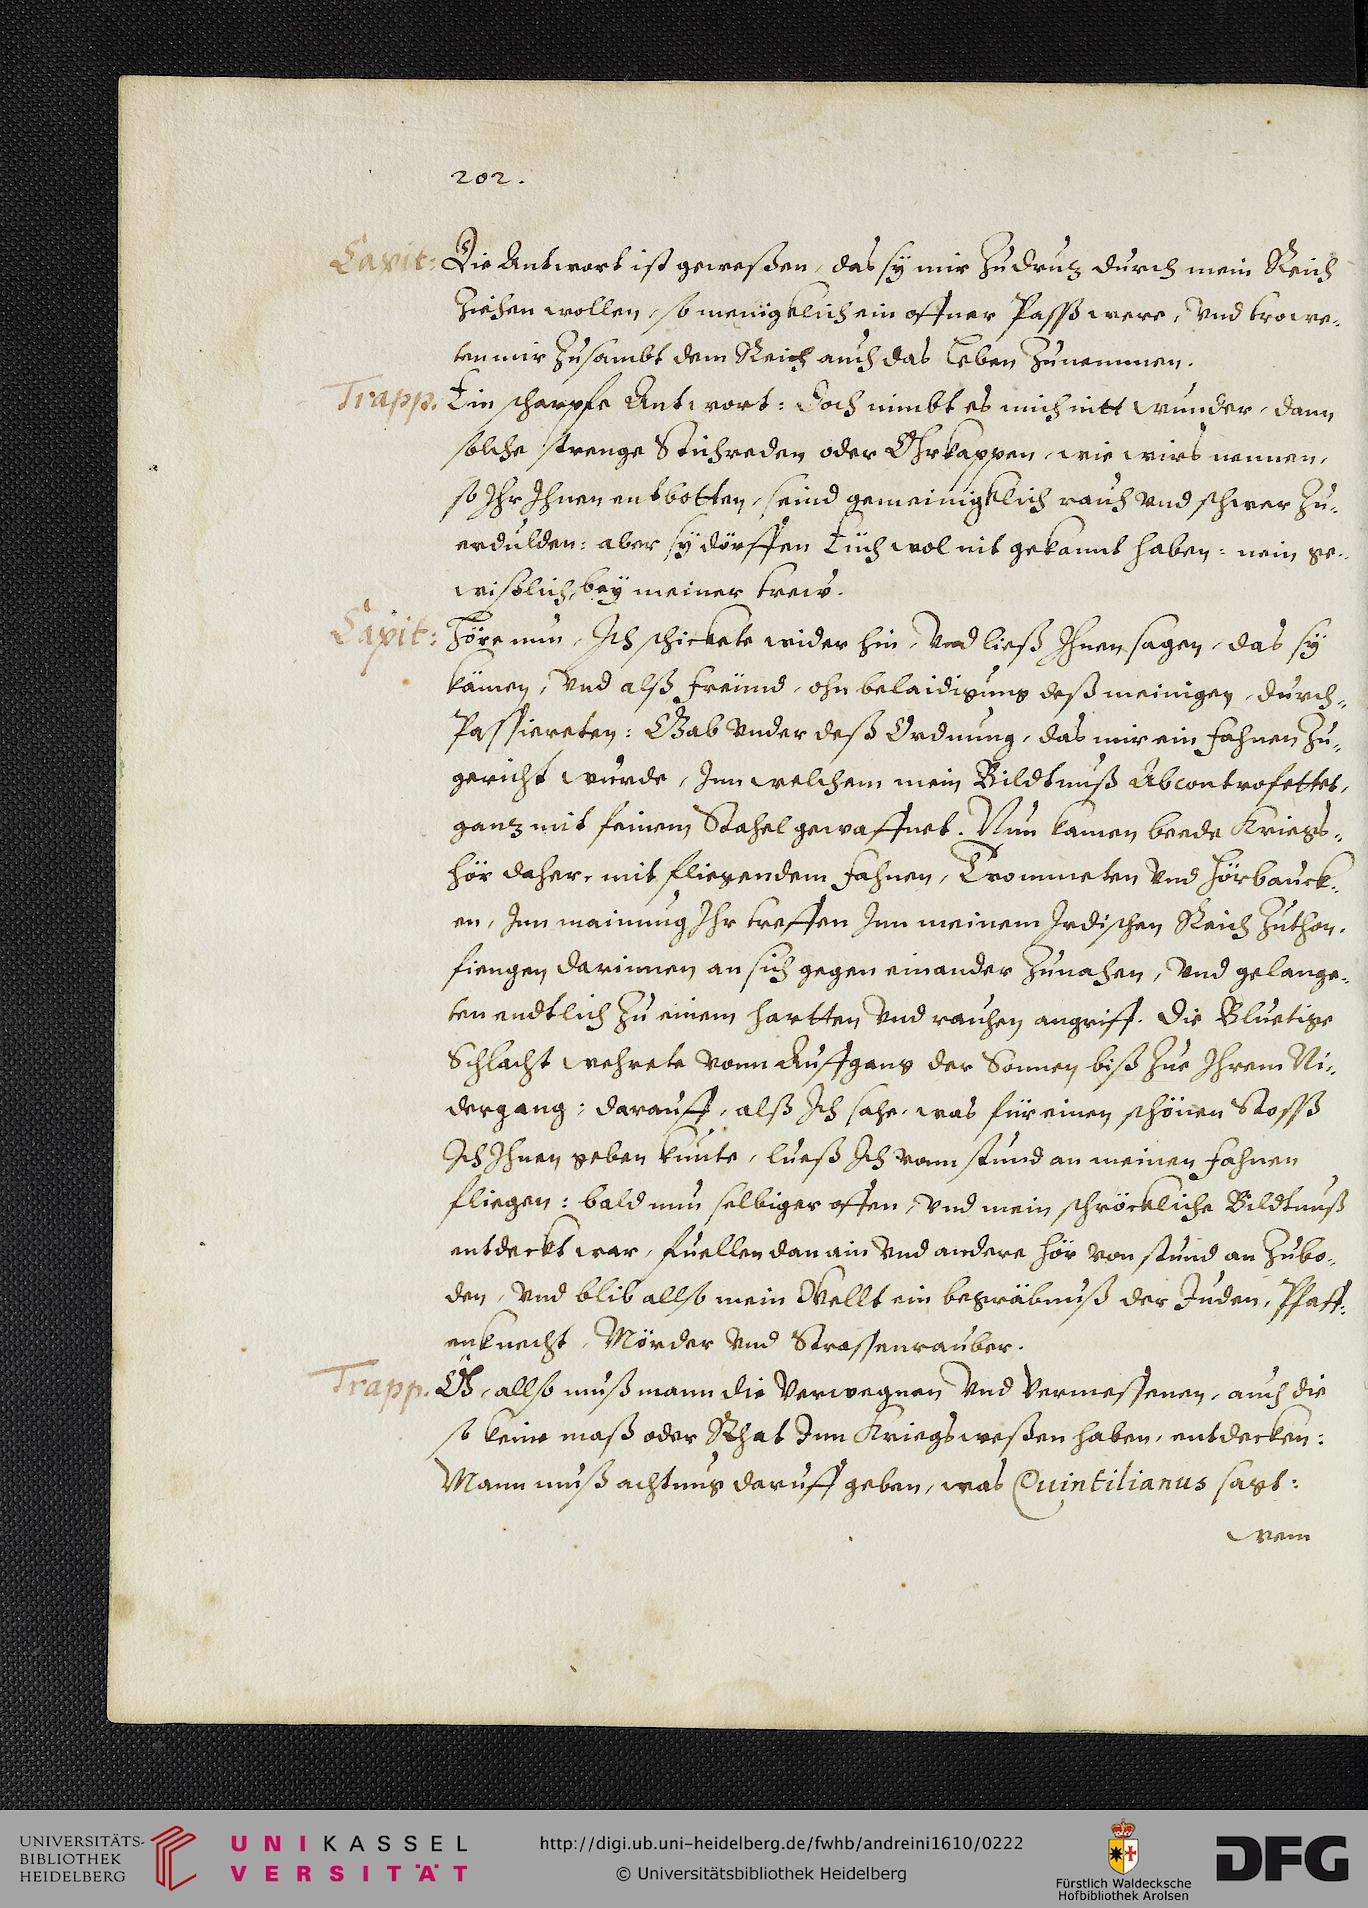 202.
Capit: Die Antwort ist geweßen, das sÿ mir zudruz durch mein Reich
ziehen wollen, so menigklich ein offner Passß were, vnd trowe„
ten mir zusambt dem Reich auch das Leben zunemmen.
Trapp. Ein scharpfe Antwort: Doch nimbt es mich nitt wunder, dann
solche strenge Stichreden oder Ohrkappen, wie wirs nennen,
so Ihr Ihnen entbotten, seind gemeinigklich rauh vnd schwer zu„
erdulden: aber sÿ dörffen Eüch wol nit gekannt haben: nein ge„
wißlich, beÿ meiner trew.
Capit: Höre nun, Ich schickete wider hin, vnd ließ Ihnen sagen, das sÿ
kämen, vnd alß freünd, ohn belaidigung deß meinigen, durch„
Passiereten: Gab vnder deß Ordnung, das mir ein fahnen zu„
gericht wurde, Inn welchem mein Bildtnuß Abcontrofettet,
ganz mit feinem Stahel gewaffnet. Nun kamen beede Kriegs„
hör daher, mit fliegendem fahnen, Trommeten vnd Hörbauck„
en, Inn mainung Ihr treffen Inn meinem Irdischen Reich zuthon,
fiengen darinnen an sich gegen einander zunahen, vnd gelange„
ten endtlich zu einem hartten vnd rauhen angriff. Die Bluetige
Schlacht wehrete vonn Auffgang der Sonnen biß zue Ihrem Ni„
dergang: darauff, alß Ich sahe, was für einen schönen Stosß
Ich Ihnen geben kunte, lueß Ich vonn stund an meinen fahnen
fliegen: bald nun selbiger offen, vnd mein schröckliche Bildtnuß
entdeckt war, fuellen dan ain vnd andere hör von stund an zubo„
den, vnd blib allso mein Wellt ein begräbnuß der Juden, Pfaff„
enknecht, Mörder vnd Strassenrauber.
Trapp. Ö, allso muß mann die Verwegnen vnd Vermessenen, auch die
so keine maß oder Rhat Inn Kriegsweßen haben, entdecken:
Mann muß achtung daruff geben, was Quintilianus sagt:
wem
UNIVERSITÄTS-
BIBLIOTHEK
HEIDELBERG
UNIKASSEL
VERSITÄT
http://digi.ub.uni-heidelberg.de/fwhb/andreini1610/0222
© Universitätsbibliothek Heidelberg
Fürstlich Waldecksche
Hofbibliothek Arolsen
DFG